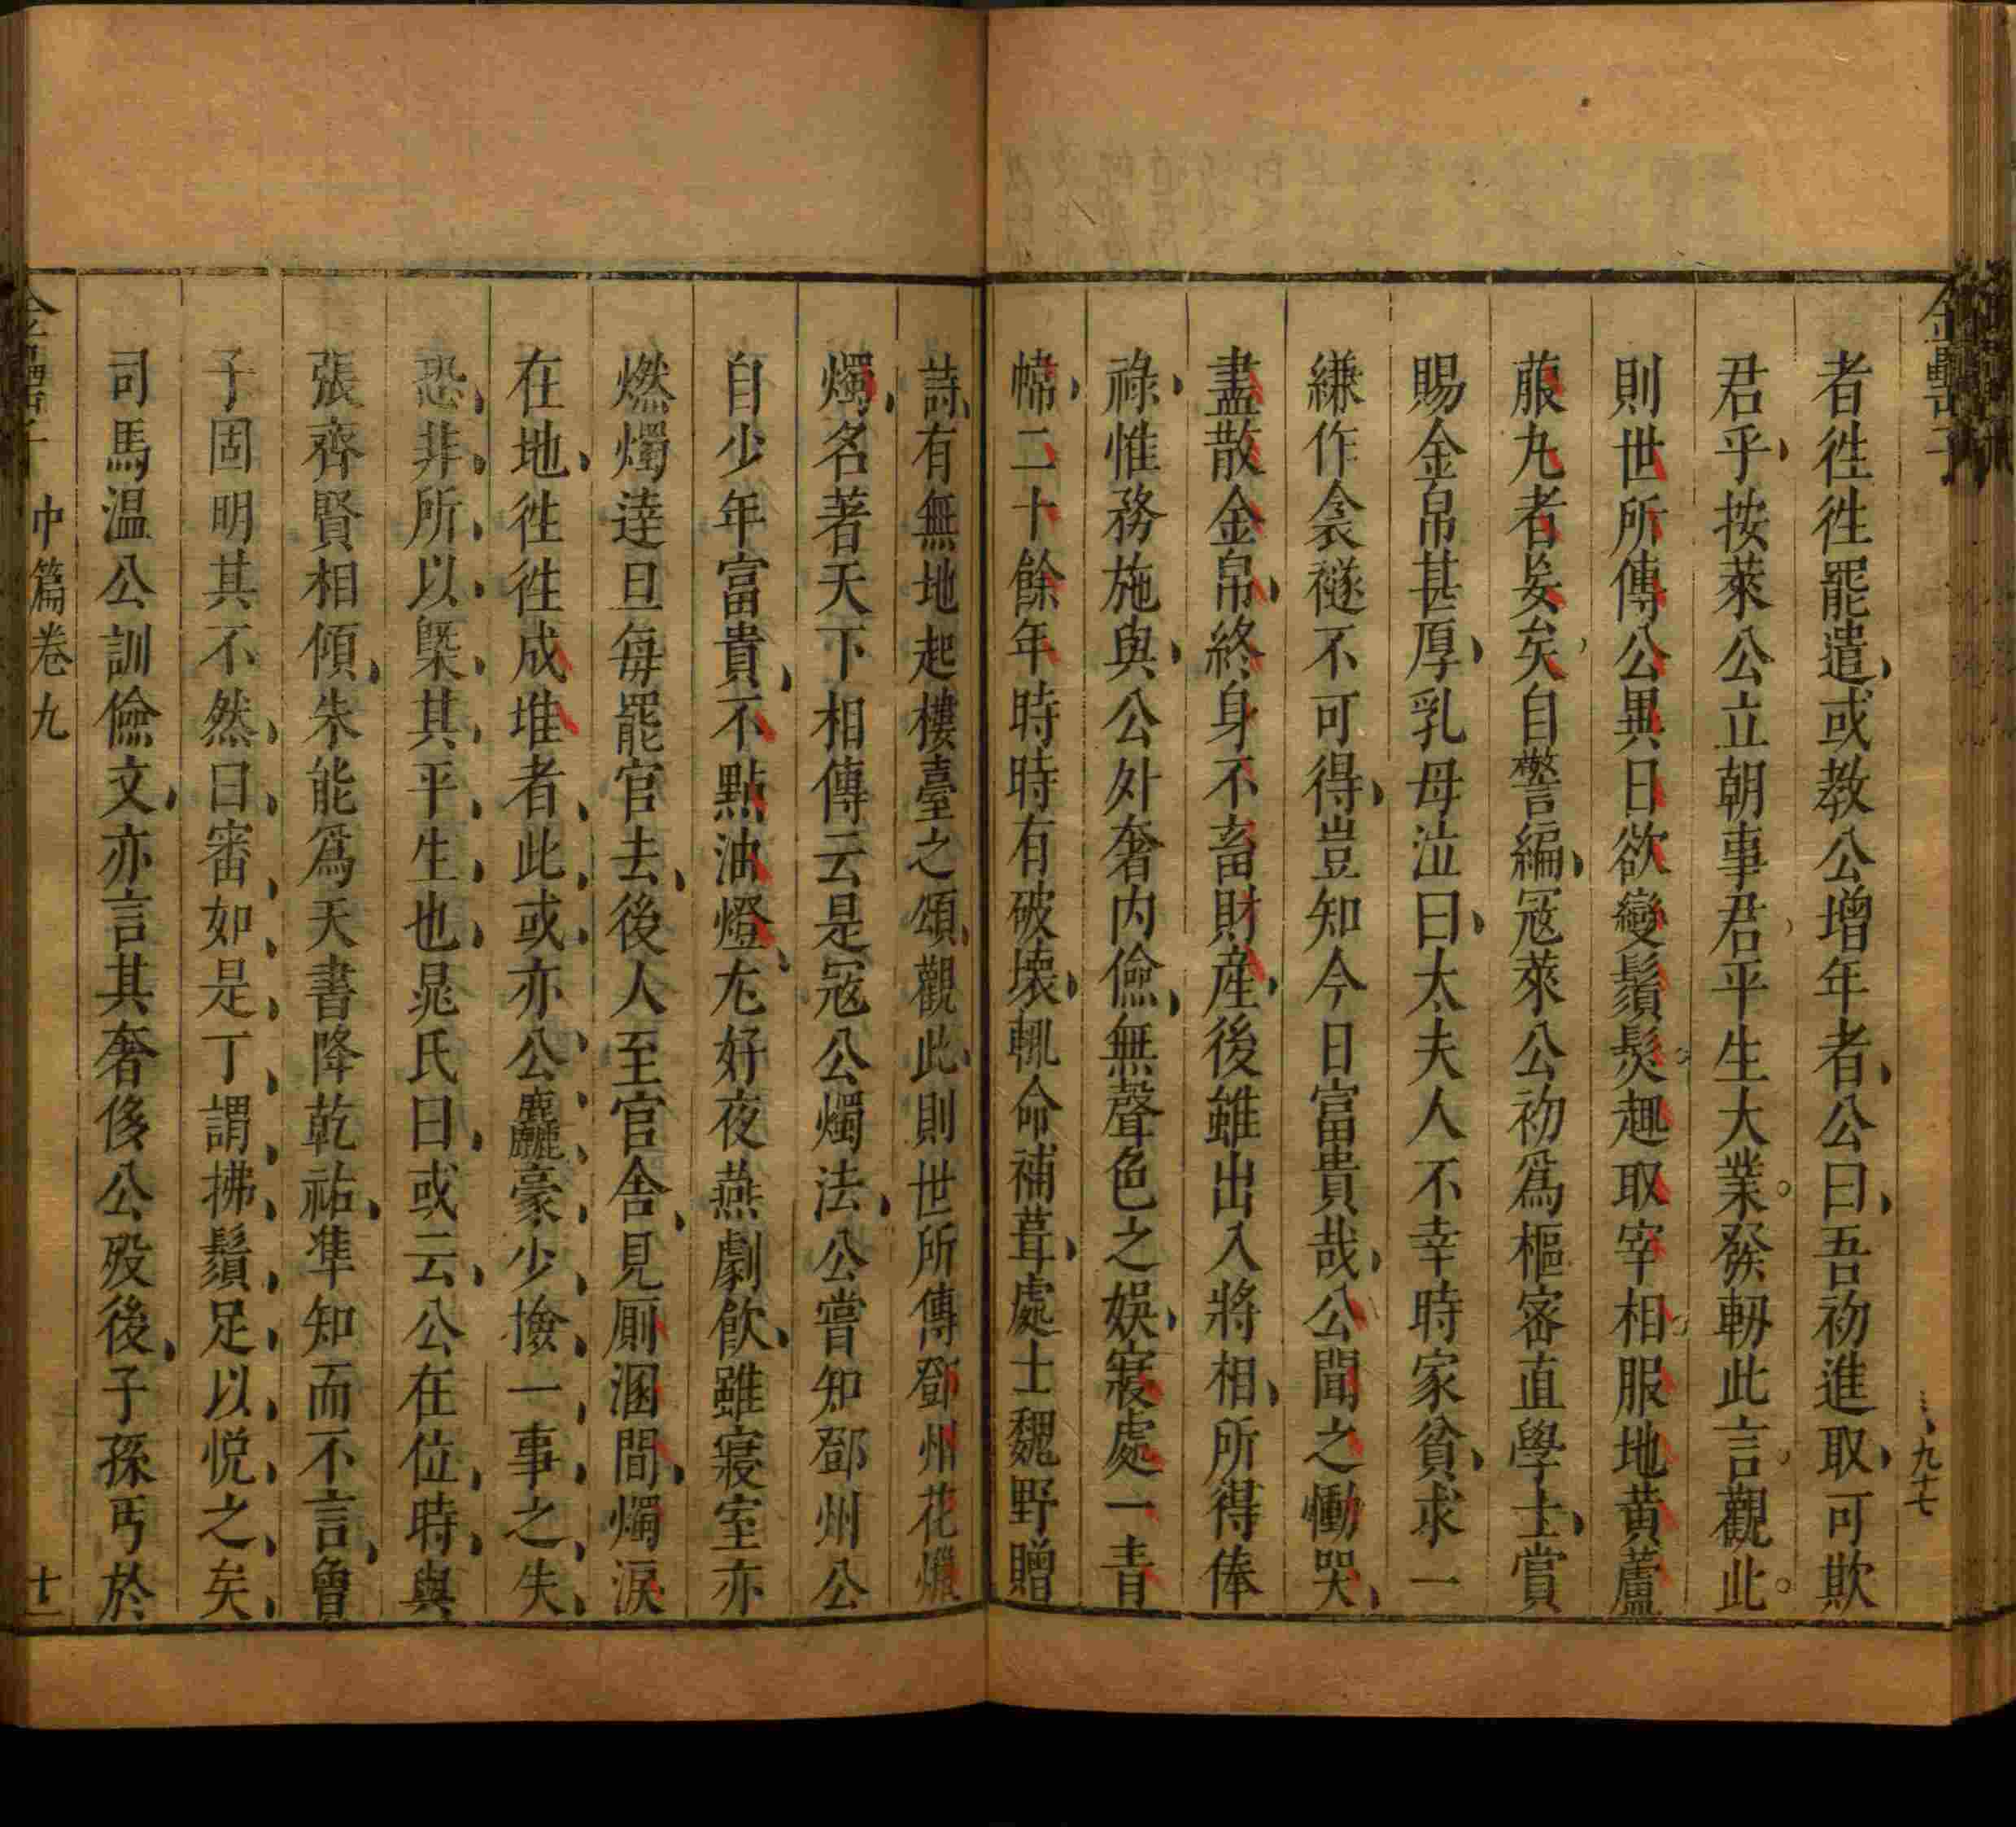 金罍子
九十七
者徃徃罷遣或教公增年者公曰吾初進取可欺
君乎按萊公立朝事君平生大業發軔此言觀此
則世所傳公異日欲變鬚髮趣取宰相服地黃蘆
菔丸者妄矣自警編寇萊公初爲樞密直學士賞
賜金帛甚厚乳母泣曰太夫人不幸時家貧求一
縑作衾襚不可得豈知今日富貴哉公聞之慟哭
盡散金帛終身不畜財産後雖出入將相所得俸
祿惟務施與公外奢内儉無聲色之娛寢處一青
幃二十餘年時時有破壞輒命補葺處士魏野贈
詩有無地起樓臺之頌觀此則世所傳鄧州花蠟
燭名著天下相傳云是寇公燭法公嘗知鄧州公
自少年富貴不點油燈尤好夜燕劇飲雖寢室亦
燃燭逹旦每罷官去後人至官舍見厠溷間燭淚
在地徃徃成堆者此或亦公麤豪少撿一事之失
恐非所以槩其平生也晁氏曰或云公在位時與
張齊賢相傾朱能爲天書降乾祐準知而不言曾
子固明其不然曰審如是丁謂拂鬚足以悦之矣
司馬温公訓儉文亦言其奢侈公殁後子孫丐於
金罍子
中篇卷九
十一